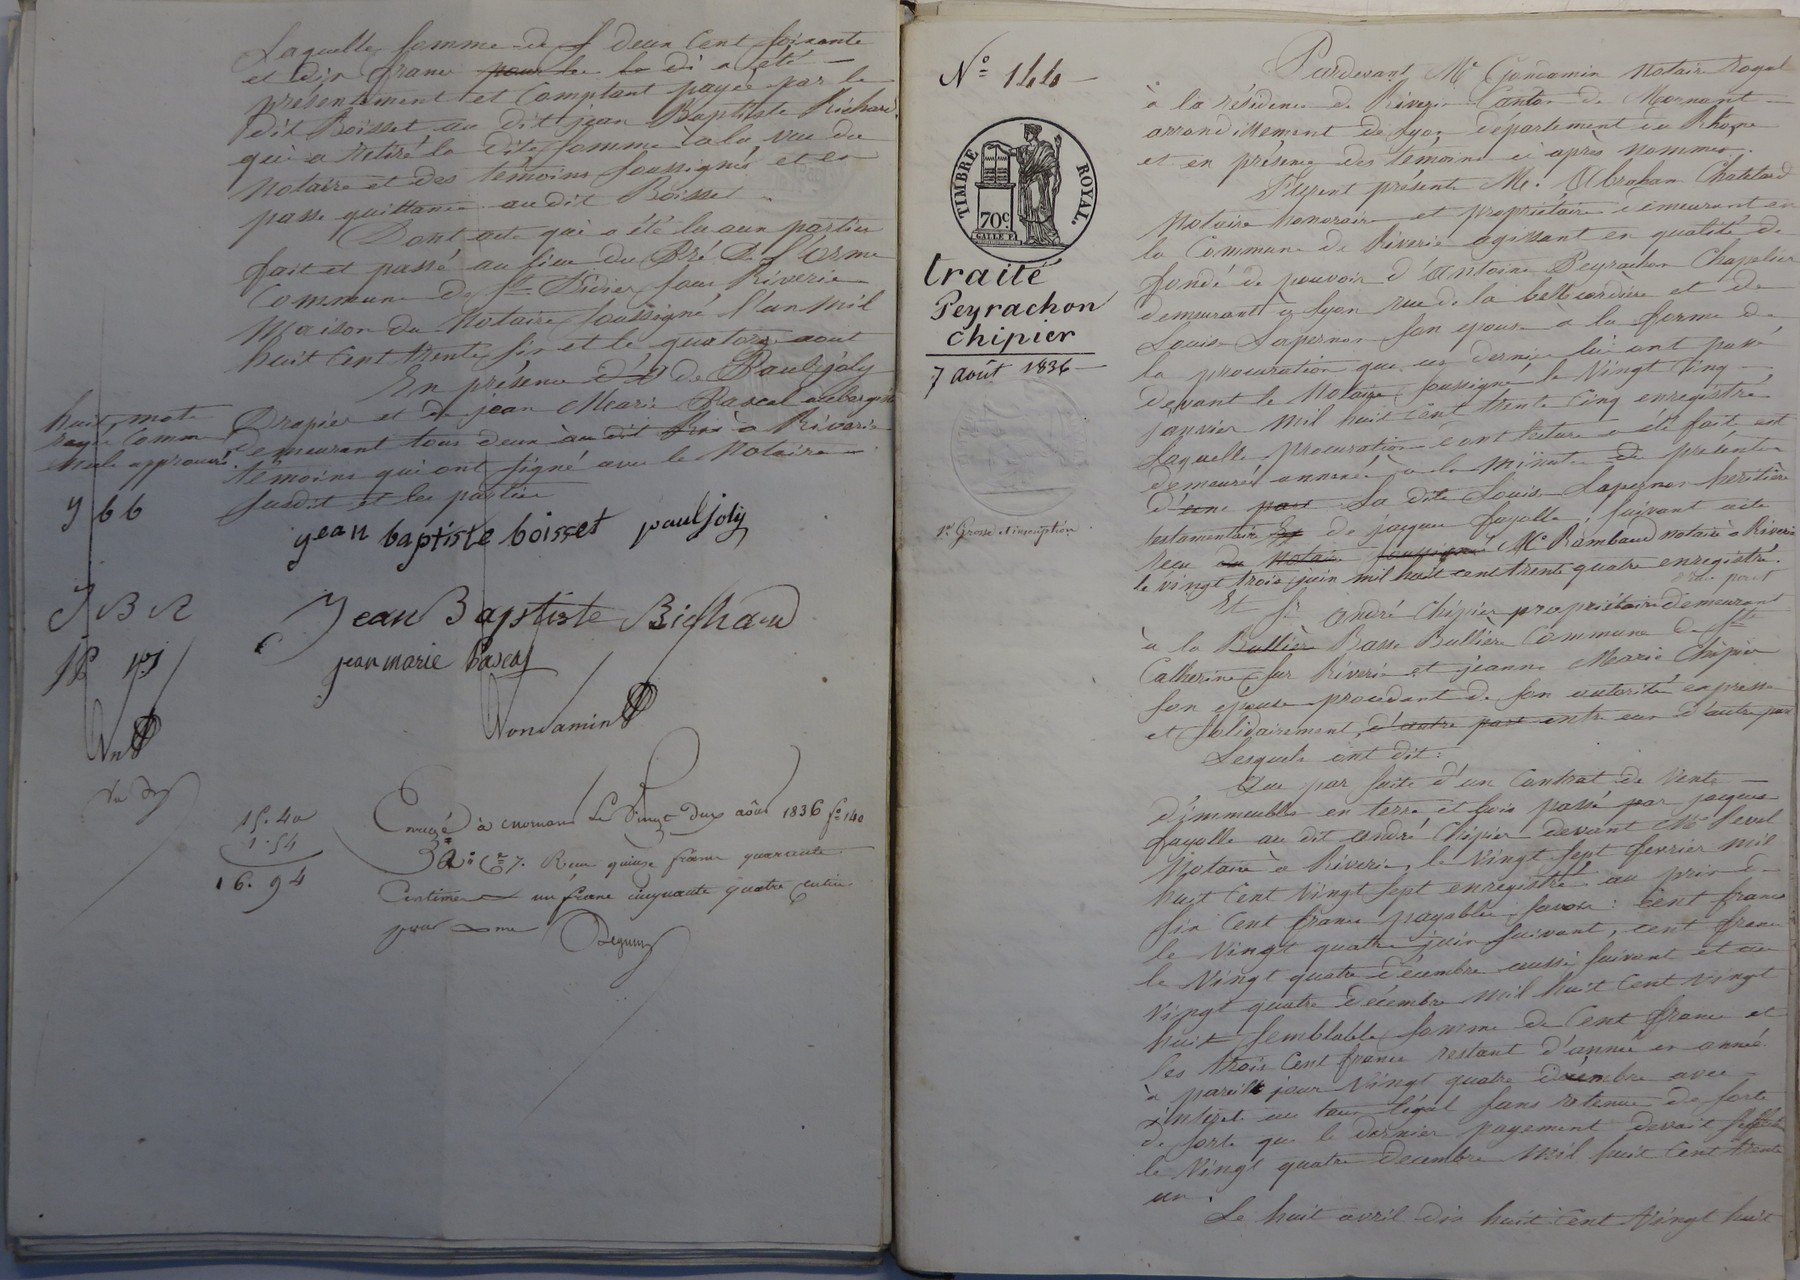 Laquelle somme de f deux Cent soixante
et dix franc pour le la di a été
présentement et Comptant payée par le
dit Boisset au dit jean Baptiste Richard
qui a retiré la dite somme à la vue du
Notaire et des témoins soussignés et en
passe quittance audit Boisset
Dont acte qui a été lu aux parties
fait et passé au lieu du Pré de l'Orme
Commune de St Didier sous Riverie
Maison du Notaire soussigné l'an mil
huit Cent trente six et le quatorze aout
En présence de Paul joly
Drapier et de jean Marie Pascal aubergiste
demeurant tous deux au dit à Riverie
témoins qui ont signé avec le Notaire
susdit et les parties
huit mots
rayés comme
nuls approuvés
J b b
J B R
JP PJ
jean baptiste boisset paul joly
Jean Baptiste Richard
jean marie Pascal
Condamin
15. 40
1. 54
16. 94
Enregé à mornant Le Vingt deux août 1836 fo 140
Ro Ce 7. Reçu quinze francs quarante
Centimes un franc cinquante quatre centimes
pour
No 144
TIMBRE ROYAL.
70c
traité
Peyrachon
chipier
7 août 1836
1e Grosse
Pardevant Me Condamin Notaire Royal
à la résidence de Riverie Canton de Mornant
arrondissement de Lyon département du Rhone
et en présence des témoins ci après nommés.
Furent présents Me. Abraham Chatelard
Notaire honoraire et propriétaire demeurant en
la Commune de Riverie agissant en qualité de
fondé de pouvoir d'Antoine Peyrachon Chapelier
demeurant à Lyon rue de la belle cordière et de
Louise Lapernon son epouse à la forme de
la procuration que ces derniers lui ont passé
devant le Notaire soussigné le Vingt Cinq
janvier Mil huit Cent trente Cinq enregistré
Laquelle procuration dont lecture a été faite est
demeurée annexée à la Minute des présentes
d'une part La dite Louise Lapernon heritière
testamentaire de jacques fayolle, suivant acte
recu du Notaire soussigné Me Rambaud notaire à Riverie
le vingt trois juin mil huit cent trente quatre enregistré.
d'une part
Et Sr André Chipier propriétaire demeurant
à la Bullière Basse Bullière Commune de Ste
Catherine sur Riverie et jeanne Marie Chipier
son epouse procedant de son autorité expresse
et solidairement, d'autre part entre eux d'autre part
Lesquels ont dit:
Que par suite d'un Contrat de Vente
d'immeubles en terre et bois passé par jacques
fayolle au dit André Chipier devant Me
Notaire à Riverie, le Vingt sept fevrier mil
huit Cent Vingt sept enregistré au prix de
six Cent francs payables, savoir: Cent francs
le Vingt quatre juin suivant, cent francs
le Vingt quatre décembre aussi suivant et au
Vingt quatre décembre Mil huit Cent Vingt
huit semblable somme de Cent francs et
les trois Cent francs restant d'année en année
à pareil jour Vingt quatre décembre avec
interet au taux légal sans retenue de sorte
de sorte que le dernier payement devait
le Vingt quatre decembre Mil huit Cent trente
un.
Le huit avril dix huit Cent Vingt huit